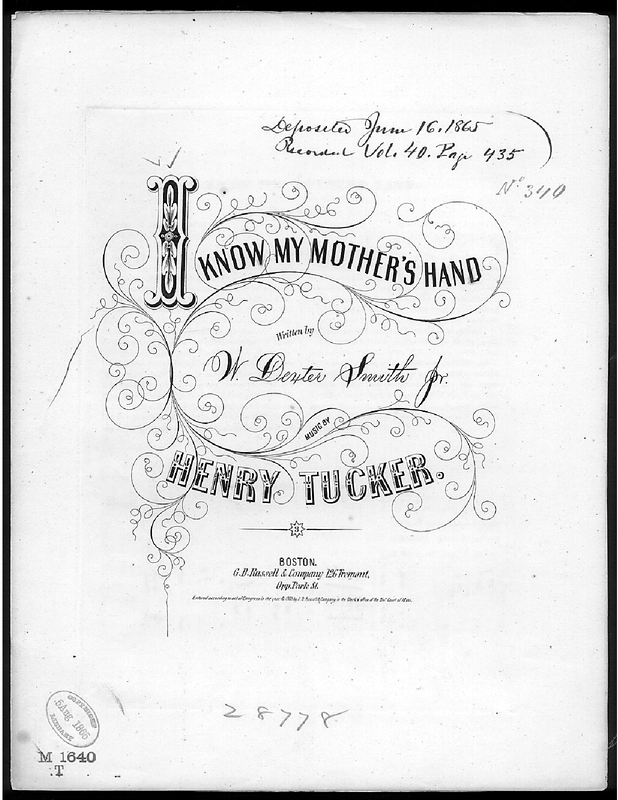 Deposited June 16. 1865
Recorded Vol. 40. Page 435
No 340
I KNOW MY MOTHER'S HAND
Written by
W. Dexter Smith Jr.
MUSIC BY
HENRY TUCKER.
3
BOSTON.
G.D. Russell & Company 126 Tremont,
Opp. Park St.
Entered according to act of Congress in the year by G. D. Russell & Company in the Clerk's office of the Dist Court of Mass.
28778
COPYRIGHT
5 Aug 1865
LIBRARY
M 1640
.T